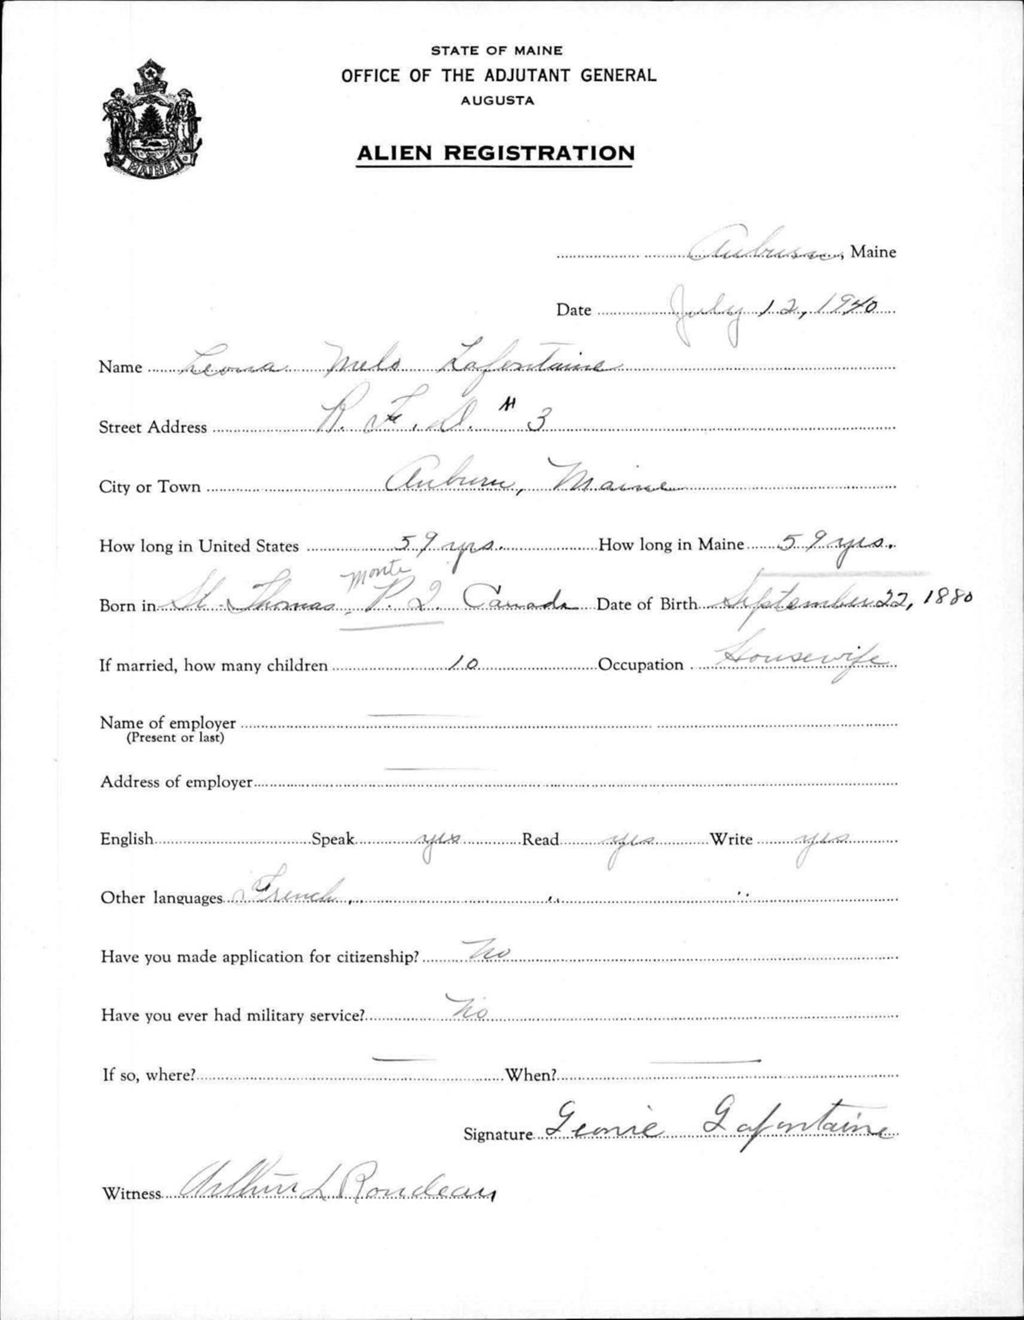 STATE OF MAINE
OFFICE OF THE ADJUTANT GENERAL
AUGUSTA
ALIEN REGISTRATION
MAINE
Auburn, Maine
Date July 12, 1940
Name Leona Lafontaine
Street Address R. F. D. # 3
City or Town Auburn, Maine
How long in United States 59 yrs. How long in Maine 59 yrs.
Monte
Born in St. Thomas, P. Q. Canada Date of Birth September 22, 1880
If married, how many children 10 Occupation Housewife
Name of employer
(Present or last)
Address of employer
English Speak yes Read yes Write yes
Other languages French " " "
Have you made application for citizenship? No
Have you ever had military service? No
If so, where? When?
Signature Leonie Lafontaine
Witness Arthur L Rondeau